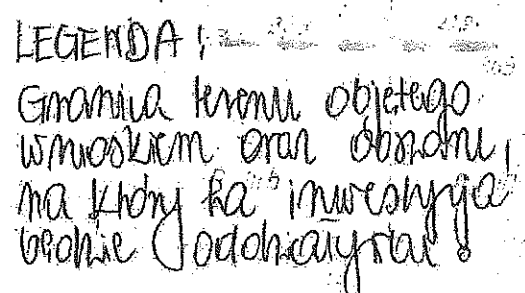 LEGENDA:
Granica terenu objętego
wnioskiem oraz obszaru,
na który ta inwestycja
będzie oddziaływać